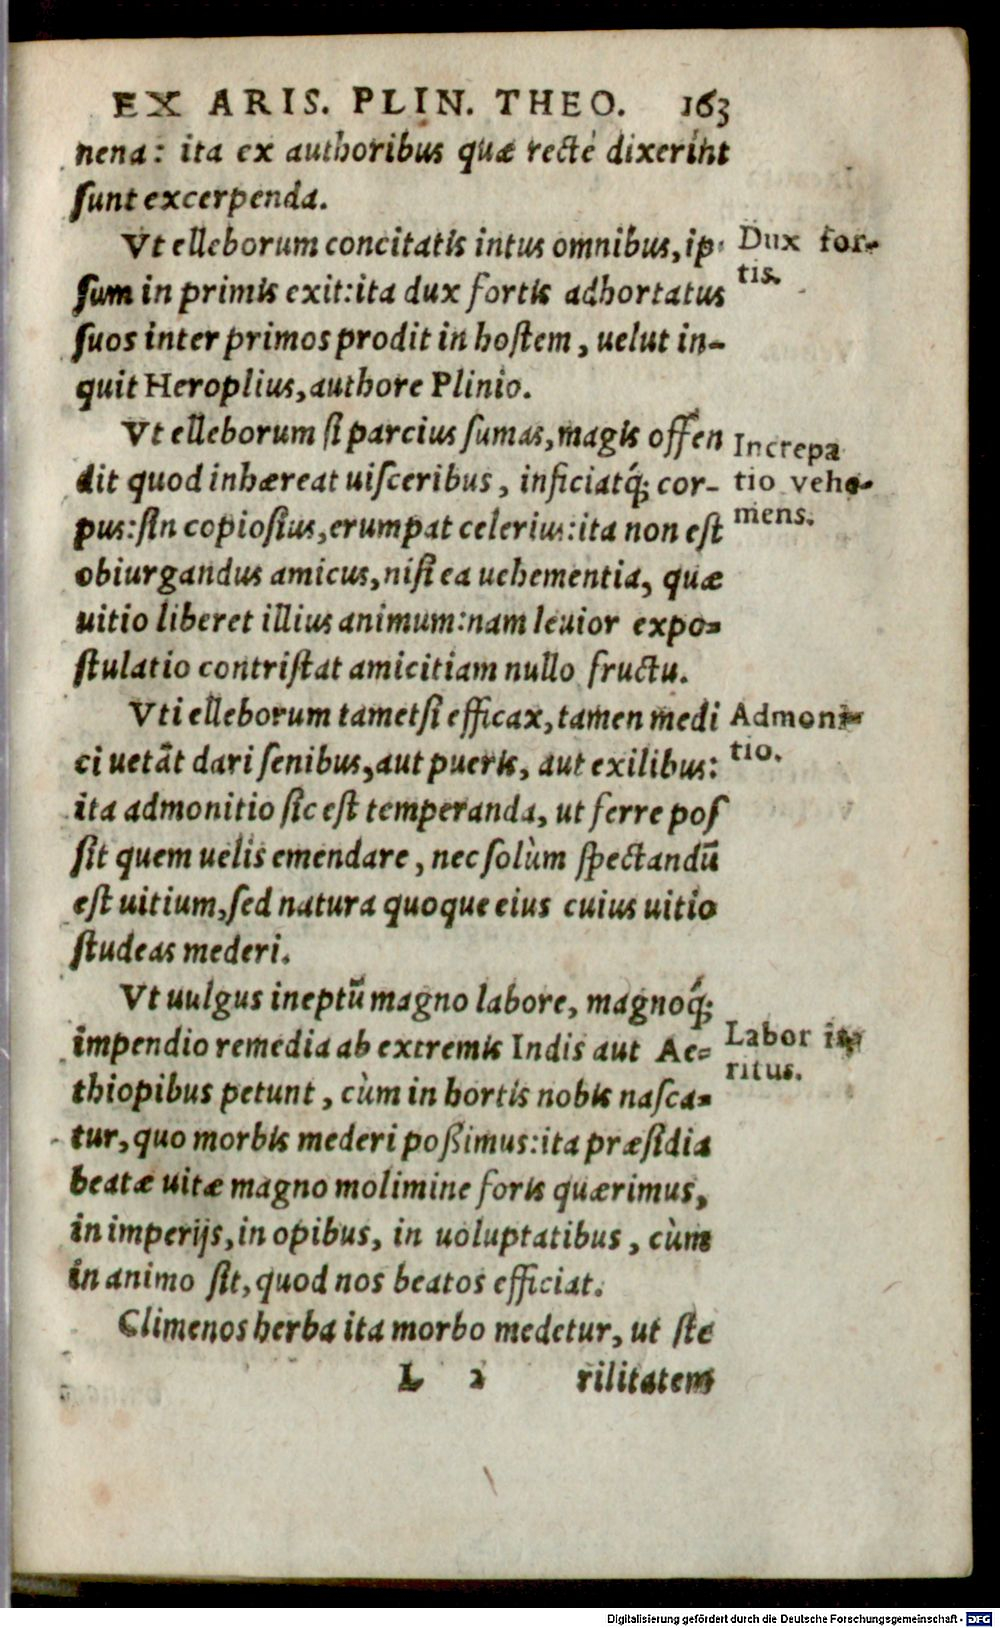 EX ARIS. PLIN. THEO. 163
nena: ita ex authoribus quæ rectè dixerint
sunt excerpenda.
Vt elleborum concitatis intus omnibus, ip-
sum in primis exit: ita dux fortis adhortatus
suos inter primos prodit in hostem, uelut in-
quit Heroplius, authore Plinio.
Dux for-
tis.
Vt elleborum si parcius sumas, magis offen
dit quod inhæreat uisceribus, inficiatq́; cor-
pus: sin copiosius, erumpat celerius: ita non est
obiurgandus amicus, nisi ea uehementia, quæ
uitio liberet illius animum: nam leuior expo-
stulatio contristat amicitiam nullo fructu.
Increpa
tio vehe-
mens.
Vti elleborum tametsi efficax, tamen medi
ci uetāt dari senibus, aut pueris, aut exilibus:
ita admonitio sic est temperanda, ut ferre pos
sit quem uelis emendare, nec solùm spectandū
est uitium, sed natura quoque eius cuius uitio
studeas mederi.
Admoni-
tio.
Vt uulgus ineptū magno labore, magnoq́;
impendio remedia ab extremis Indis aut Ae-
thiopibus petunt, cùm in hortis nobis nasca-
tur, quo morbis mederi poßimus: ita præsidia
beatæ uitæ magno molimine foris quærimus,
in imperijs, in opibus, in uoluptatibus, cùm
in animo sit, quod nos beatos efficiat.
Labor ir-
ritus.
Climenos herba ita morbo medetur, ut ste
L 2 rilitatem
Digitalisierung gefördert durch die Deutsche Forschungsgemeinschaft - DFG